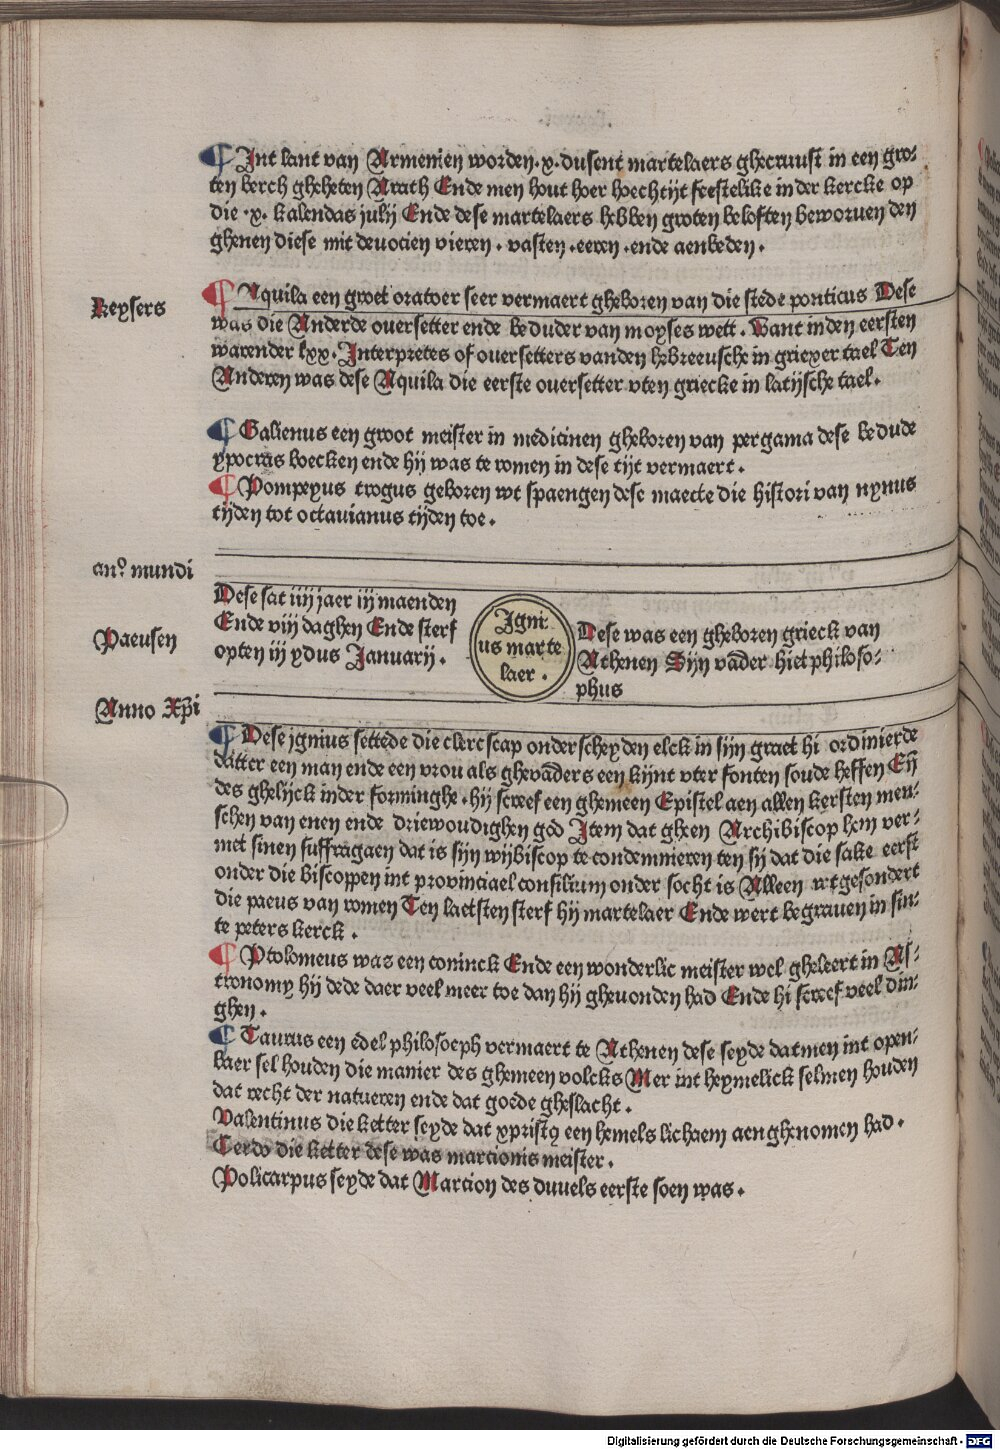 ¶ Jnt lant van Armenien worden .x. dusent martelaers ghecruust in een gro-
ten berch gheheten Arath Ende men hout hoer hoechtijt feestelike in der kercke op
die .x. kalendas julij Ende dese martelaers hebben groten beloften verworuen den
ghenen diese mit deuocien vieren . vasten . eeren . ende aenbeden .
keysers
¶ Aquila een groet oratoer seer vermaert gheboren van die stede ponticus Dese
was die Anderde ouersetter ende beduder van moyses wett . Want in den eersten
warender lxx. Jnterpretes of ouersetters vanden hebreeusche in griexer tael Ten
Anderen was dese Aquila die eerste ouersetter vten griecke in latijsche tael .
¶ Galienus een groot meister in medicinen gheboren van pergama dese bedude
ypocras boecken ende hij was te romen in dese tijt vermaert .
¶ Pompeyus trogus geboren wt spaengen dese maecte die histori van nynus
tijden tot octauianus tijden toe .
anº mundi
Paeusen
Dese sat iiij jaer iij maenden
Ende viij daghen Ende sterf
opten iij ydus Januarij .
Jgni-
us marte
laer .
Dese was een gheboren grieck van
Athenen Sijn vād​er hiet philoso-
phus
Anno Xp̄i
¶ Dese jgnius settede die clercscap onderscheyden elck in sijn graet hi ordinierde
datter een man ende een vrou als ghevāders een kijnt vter fonten soude heffen Eñ
des ghelijck inder forminghe . hij screef een ghemeen Epistel aen allen kersten men-
schen van enen ende driewoudighen god Jtem dat gheen Archibiscop hem ver-
met sinen suffragaen dat is sijn wijbiscop te condemnieren ten sij dat die sake eerst
onder die biscoppen int prouinciael consilium ondersocht is Alleen wtgesondert
die paeus van romen Ten laetsten sterf hij martelaer Ende wert begrauen in sin-
te peters kerck .
¶ Ptolomeus was een coninck Ende een wonderlic meister wel gheleert in As-
tronomy hij dede daer veel meer toe dan hij gheuonden had Ende hi screef veel din-
ghen .
¶ Taurus een edel philosoeph vermaert te Athenen dese seyde datmen int open-
baer sel houden die manier des ghemeen volcks Mer int heymelick selmen houden
dat recht der natueren ende dat goede gheslacht .
Valentinus die ketter seyde dat xpristꝯ een hemels lichaem aenghenomen had .
Cerdo die ketter dese was marcionis meister .
Policarpus seyde dat Marcion des duuels eerste soen was .
Digitalisierung gefördert durch die Deutsche Forschungsgemeinschaft - DFG